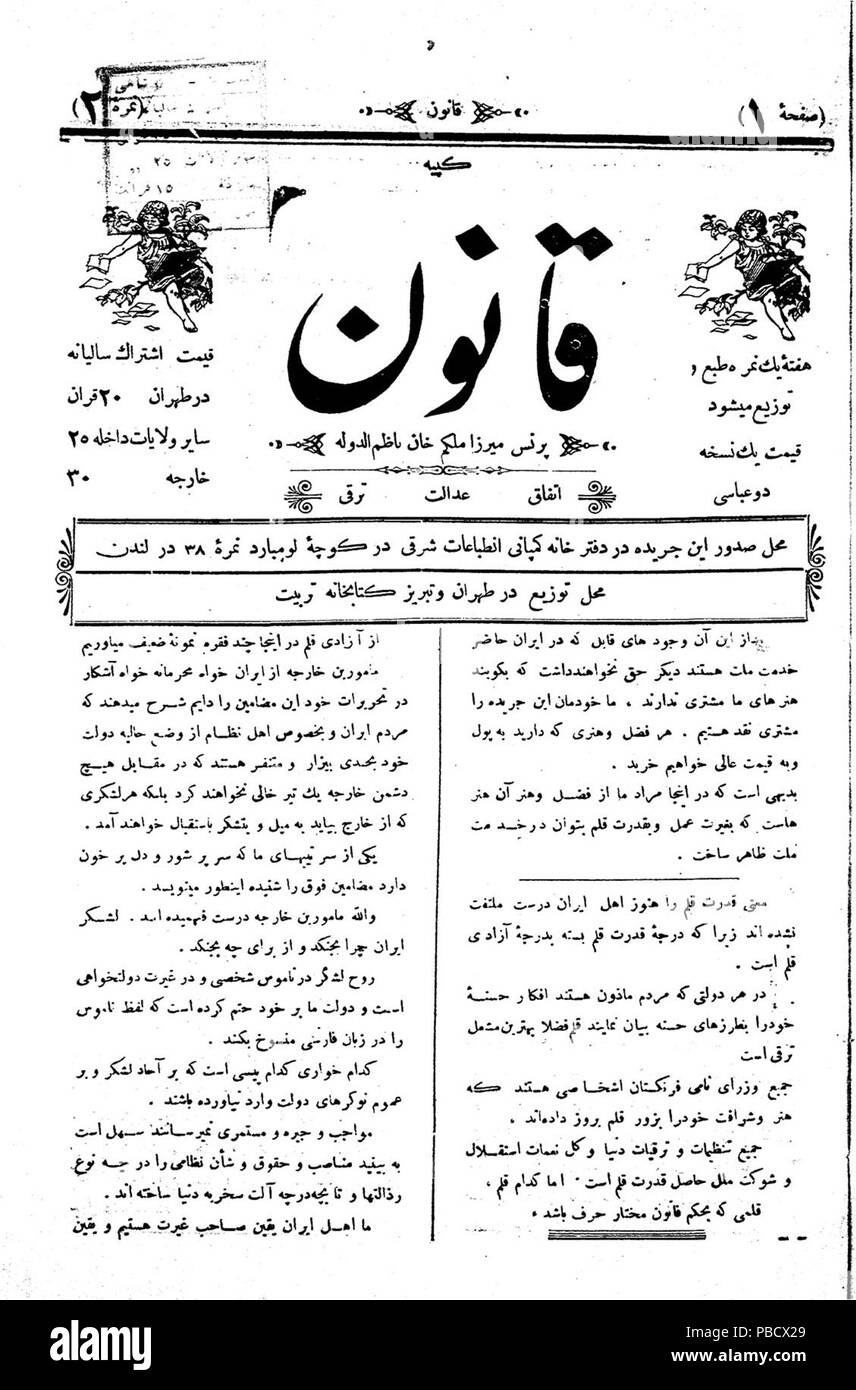 (صفحهٔ ۱)
قانون
(نمره ۲)
کپیه
قانون
پرنس میرزا ملکم خان ناظم الدوله
اتفاق عدالت ترقی
هفتهٔ یك نمره طبع و
توزیع میشود
قیمت یك نسخه
دو عباسی
قیمت اشتراك سالیانه
در طهران ۲۰ قران
سایر ولایات داخله ۲۵
خارجه ۳۰
محل صدور این جریده در دفتر خانه کمپانی انطباعات شرقی در کوچهٔ لومبارد نمرهٔ ۳۸ در لندن
محل توزیع در طهران و تبریز کتابخانه تربیت
بعداز این آن وجود های قابل که در ایران حاضر
خدمت ملت هستند دیگر حق نخواهندداشت که بگویند
هنرهای ما مشتری ندارند ، ما خودمان این جریده را
مشتری نقد هستیم . هر فضل وهنری که دارید به پول
وبه قیمت عالی خواهیم خرید .
بدیهی است که در اینجا مراد ما از فضل وهنر آن هنر
هاست که بغیرت عمل وبقدرت قلم بتوان درخدمت
ملت ظاهر ساخت .
معنی قدرت قلم را هنوز اهل ایران درست ملتفت
نشده اند زیرا که درجهٔ قدرت قلم بسته بدرجهٔ آزادی
قلم است .
در هر دولتی که مردم ماذون هستند افکار حسنهٔ
خودرا بطرزهای حسنه بیان نمایند قلم فضلا بهترین مشعل
ترقی است
جمیع وزرای نامی فرنگستان اشخاصی هستند که
هنر وشرافت خودرا بزور قلم بروز داده‌اند .
جمیع تنظیمات و ترقیات دنیا وکل نعمات استقلال
و شوکت ملل حاصل قدرت قلم است . اما کدام قلم ،
قلمی که بحکم قانون مختار حرف باشد .
از آزادی قلم در اینجا چند فقره نمونهٔ ضعیف میاوریم
مامورین خارجه از ایران خواه محرمانه خواه آشکار
در تحریرات خود این مضامین را دایم شرح میدهند که
مردم ایران و بخصوص اهل نظام از وضع حالیه دولت
خود بحدی بیزار و متنفر هستند که در مقابل هیچ
دشمن خارجه یك تیر خالی نخواهند کرد بلکه هرلشکری
که از خارج بیاید به میل و بتشکر باستقبال خواهند آمد .
یکی از سر تیبهای ما که سر پر شور و دل پر خون
دارد مضامین فوق را شنیده اینطور مینویسد .
والله مامورین خارجه درست فهمیده اند . لشکر
ایران چرا بجنکد و از برای چه بجنکد .
روح لشگر در ناموس شخصی و در غیرت دولتخواهی
است و دولت ما بر خود حتم کرده است که لفظ ناموس
را در زبان فارسی منسوخ بکند .
کدام خواری کدام پیسی است که بر آحاد لشکر و بر
عموم نوکرهای دولت وارد نیاورده باشند .
مواجب و جیره و مستمری نمیرسانند سهل است
به بینید مناصب و حقوق و شأن نظامی را در چه نوع
رذالتها و تا بچه درجه آلت سخریه دنیا ساخته اند .
ما اهل ایران یقین صاحب غیرت هستیم و یقین
۲۵
۱۵ قران
alamy
alamy
Image ID: PBCX29
www.alamy.com